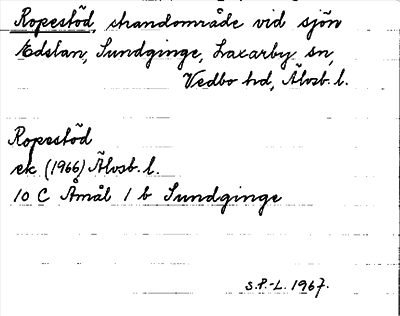 Ropestöd, strandområde vid sjön
Edslan, Sundginge, Laxarby sn,
Vedbo hd, Älvsb. l.
Ropestöd
ek (1966) Älvsb. l.
10 C Åmål 1 b Sundginge
S.P.-L. 1967.